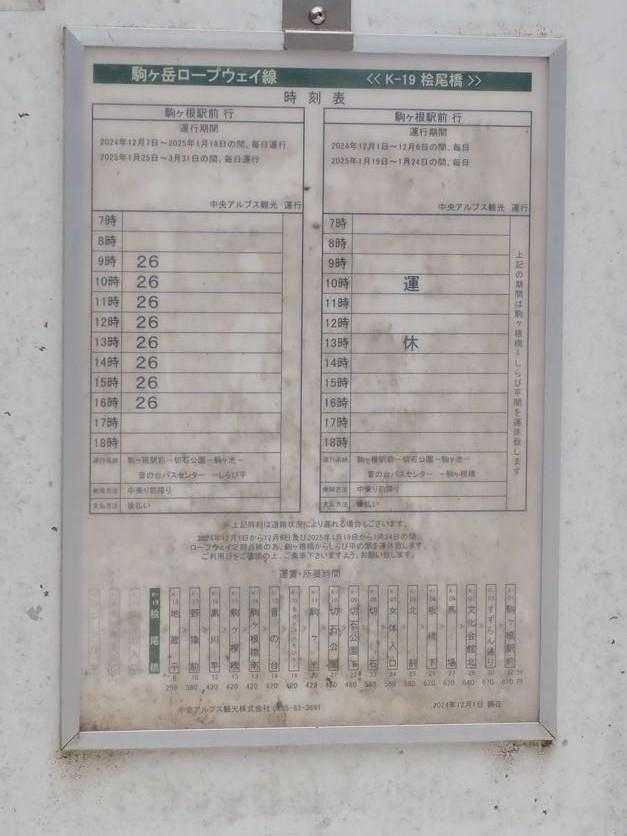 駒ヶ岳ロープウェイ線 << K-19 桧尾橋 >>
時 刻 表
駒ヶ根駅前 行
運行期間
2024年12月7日～2025年1月18日の間、毎日運行
2025年1月25日～3月31日の間、毎日運行
中央アルプス観光 運行
7時
8時
9時 26
10時 26
11時 26
12時 26
13時 26
14時 26
15時 26
16時 26
17時
18時
運行系統 駒ヶ根駅前－切石公園－駒ヶ池－
菅の台バスセンター －しらび平
乗降方法 中乗り前降り
支払方法 後払い
駒ヶ根駅前 行
運行期間
2024年12月1日～12月6日の間、毎日
2025年1月19日～1月24日の間、毎日
中央アルプス観光 運行
7時
8時
9時
10時 運
11時
12時
13時 休
14時
15時
16時
17時
18時
上記の期間は駒ヶ根橋－しらび平間を運休致します
運行系統 駒ヶ根駅前－切石公園－駒ヶ池－
菅の台バスセンター －駒ヶ根橋
乗降方法 中乗り前降り
支払方法 後払い
上記時刻は道路状況により遅れる場合もございます。
2024年12月1日から12月6日及び2025年1月19日から1月24日の間、
ロープウェイ定期点検の為、駒ヶ根橋からしらび平の間を運休致します。
ご利用日をご確認の上、ご乗車下さいますよう、お願い致します。
運賃・所要時間
桧尾橋
菅の台
切石公園
女体入口
文化会館北
すずらん通り
駒ヶ根駅前
中央アルプス観光株式会社
2024年12月1日 現在